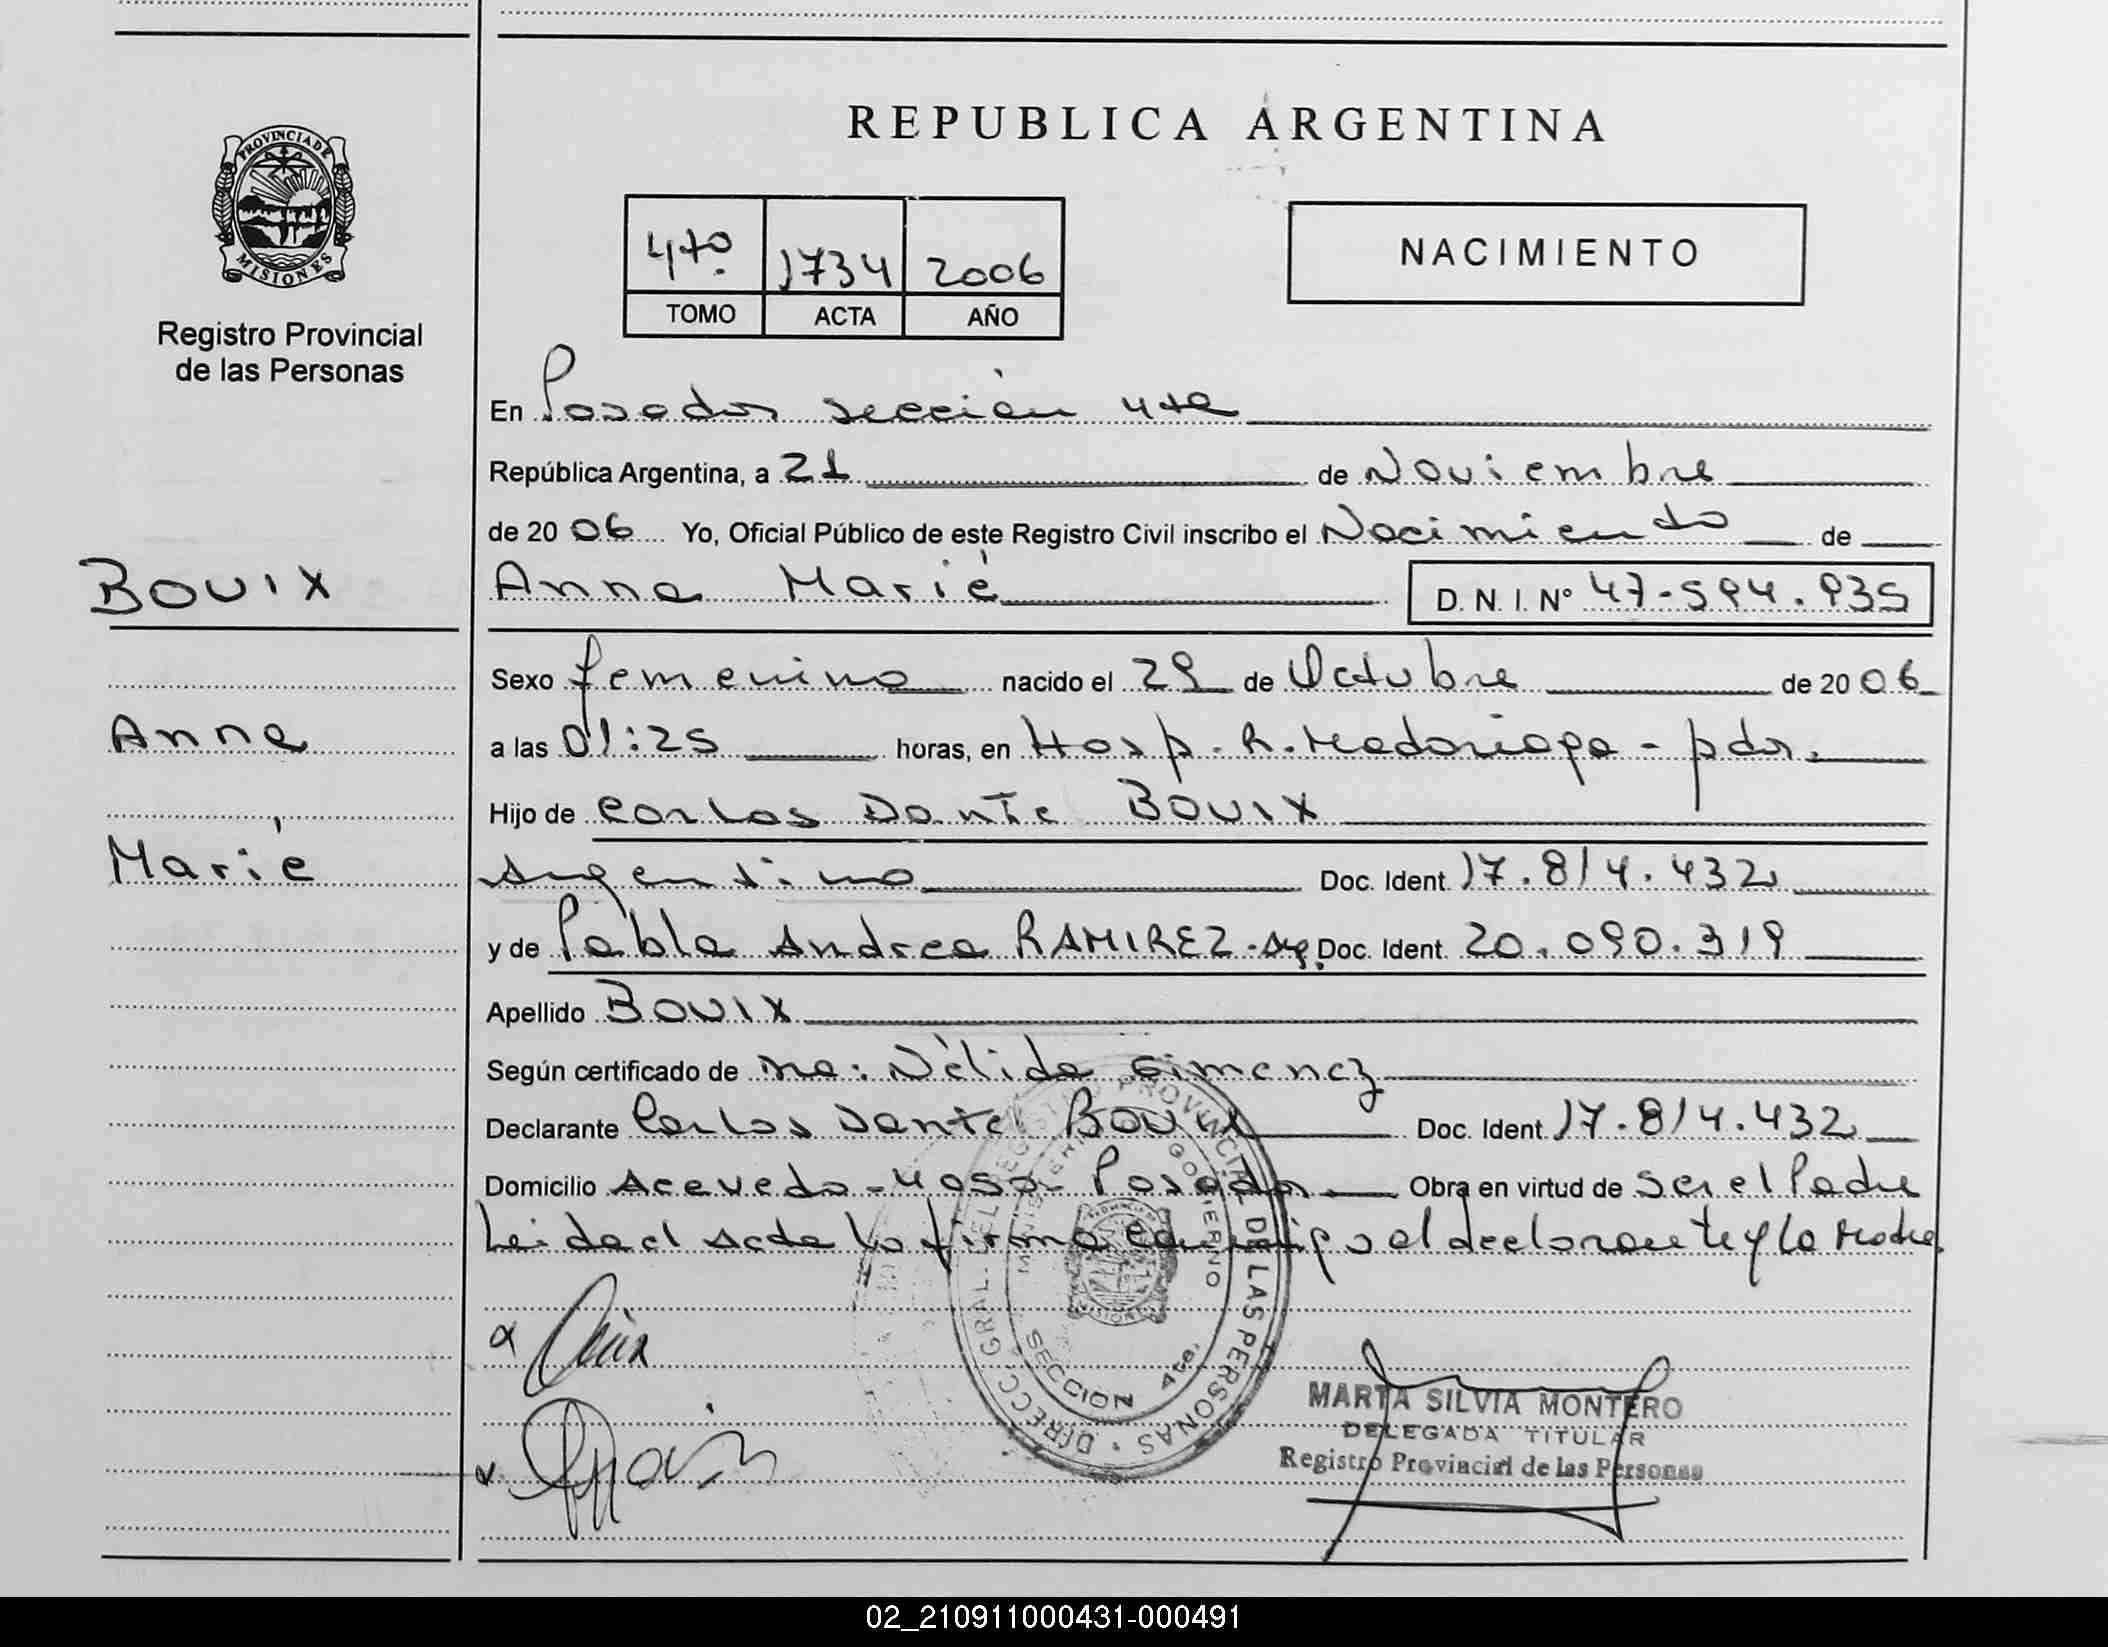 REPUBLICA ARGENTINA
PROVINCIA DE
MISIONES
Registro Provincial
de las Personas
4to. 1734 2006
TOMO ACTA AÑO
NACIMIENTO
En Posadas sección 4ta
República Argentina, a 21 de Noviembre
de 20 06 Yo, Oficial Público de este Registro Civil inscribo el Nacimiento de
BOUIX
Anna Marié D. N. I. N° 47-594.935
Sexo femenino nacido el 29 de Octubre de 20 06
Anna
a las 01:25 horas, en Hosp. R. Madariaga - pdas.
Hijo de Carlos Dante BOUIX
Marié
Argentino Doc. Ident. 17.814.432
y de Pabla Andrea RAMIREZ - Arg. Doc. Ident. 20.090.319
Apellido BOUIX
Según certificado de Nélida Gimenez
Declarante Carlos Dante BOUIX Doc. Ident. 17.814.432
Domicilio Acevedo - Posadas Obra en virtud de ser el Padre
Leida el Acta la firma conmigo el declarante y la Madre.
DIRECC. GRAL. DEL REGISTRO PROVINCIAL DE LAS PERSONAS
MINISTERIO GOBIERNO
MISIONES
SECCION 4ta.
MARTA SILVIA MONTERO
DELEGADA TITULAR
Registro Provincial de las Personas
02_210911000431-000491